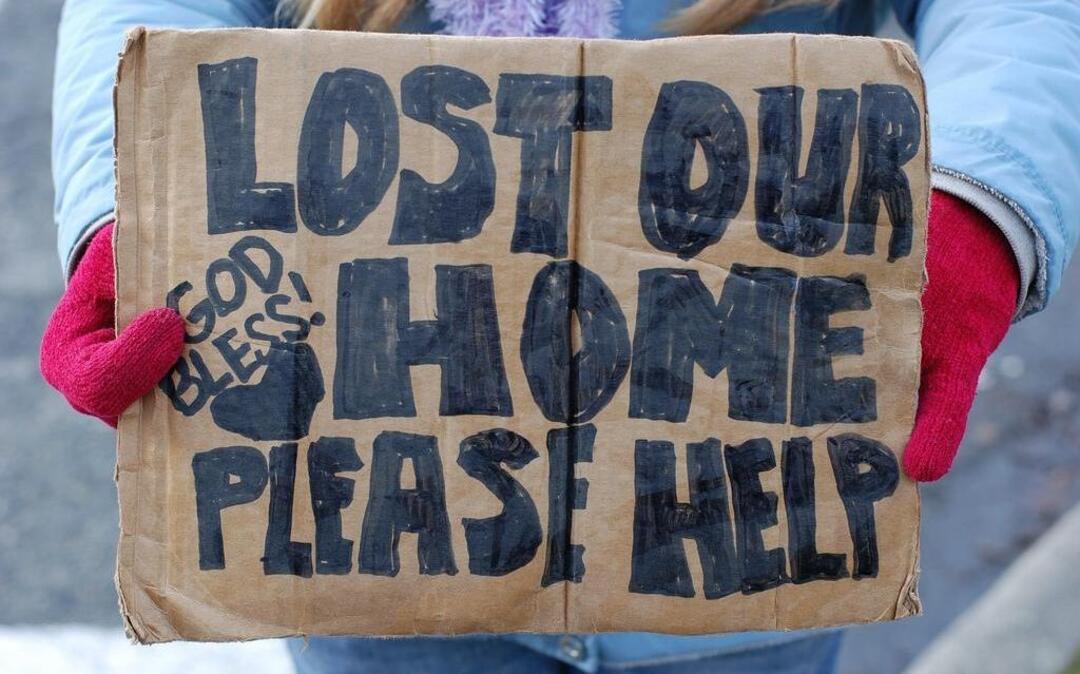 LOST OUR
GOD
BLESS!
HOME
PLEASE HELP